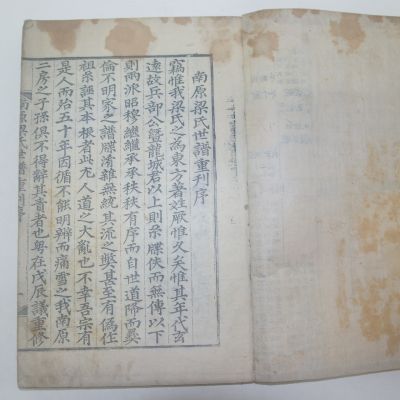 南原梁氏世譜重刋序
竊惟我梁氏之為東方著姓厥惟久矣惟其年代玄
遠故兵部公曁龍城君以上則系牒佚而無傳以下
則兩派昭穆繼繼承承秩秩有序而自世道降而彛
倫不明家之譜牒淆雜無統其流之弊甚至有僞任
祖系誣其本根者此尤人道之大亂也不幸吾宗有
是人而殆五十年因循不能明辨而痛雪之我南原
二房之子孫俱不得辭其責者也粤在戊辰議重修
南原梁氏世譜重刋序